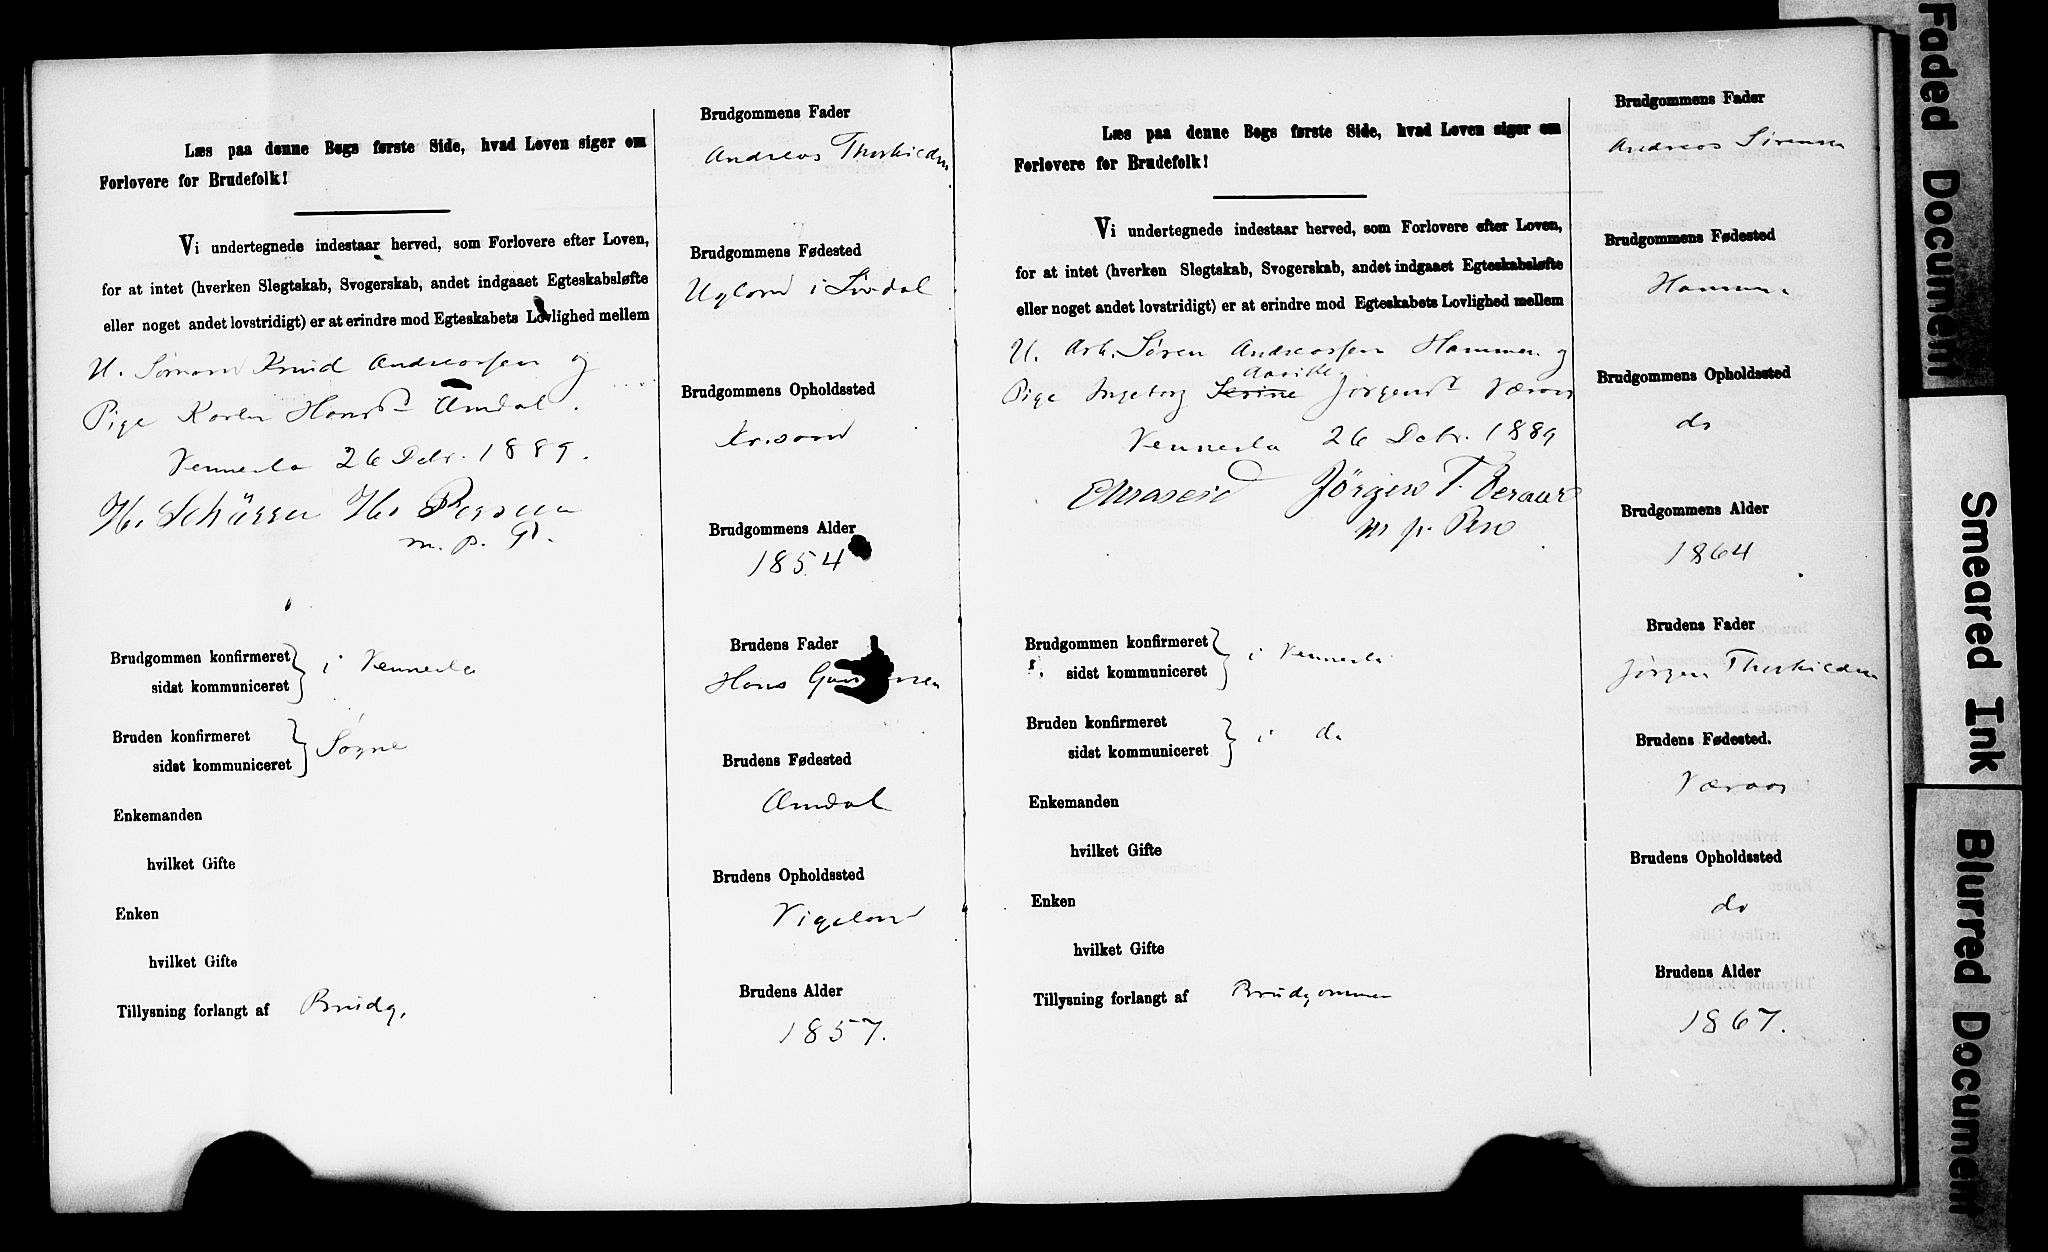 Læs paa denne Bogs første Side, hvad Loven siger om
Forlovere for Brudefolk!
Vi undertegnede indestaar herved, som Forlovere efter Loven,
for at intet (hverken Slegtskab, Svogerskab, andet indgaaet Egteskabsløfte
eller noget andet lovstridigt) er at erindre mod Egteskabets Lovlighed mellem
U. Sømand Knud Andreassen og
Pige Karen Hansd Omdal.
Vennesla 26 Debr. 1889.
m. p. P.
Brudgommen konfirmeret
sidst kommuniceret
i Vennesla
Bruden konfirmeret
sidst kommuniceret
Søgne
Enkemanden
hvilket Gifte
Enken
hvilket Gifte
Tillysning forlangt af Brudg.
Brudgommens Fader
Andreas Thorkildsen
Brudgommens Fødested
Ugland i
Brudgommens Opholdssted
Kr.sand
Brudgommens Alder
1854
Brudens Fader
Hans
Brudens Fødested
Omdal
Brudens Opholdssted
Vigeland
Brudens Alder
1857.
Læs paa denne Bogs første Side, hvad Loven siger om
Forlovere for Brudefolk!
Vi undertegnede indestaar herved, som Forlovere efter Loven,
for at intet (hverken Slegtskab, Svogerskab, andet indgaaet Egteskabsløfte
eller noget andet lovstridigt) er at erindre mod Egteskabets Lovlighed mellem
U. Arb. Søren Andreassen Hammen og
Pige Ingeborg Jørgensd Væraas
Vennesla 26 Debr. 1889
Jørgen T. Veraas
m p. Pen
Brudgommen konfirmeret
sidst kommuniceret
i Vennesla
Bruden konfirmeret
sidst kommuniceret
i do
Enkemanden
hvilket Gifte
Enken
hvilket Gifte
Tillysning forlangt af Brudgommen
Brudgommens Fader
Andreas Sørensen
Brudgommens Fødested
Hammen
Brudgommens Opholdssted
do
Brudgommens Alder
1864
Brudens Fader
Jørgen Thorkildsen
Brudens Fødested.
Væraas
Brudens Opholdssted
do
Brudens Alder
1867.
Faded Document
Smeared Ink
Blurred Document